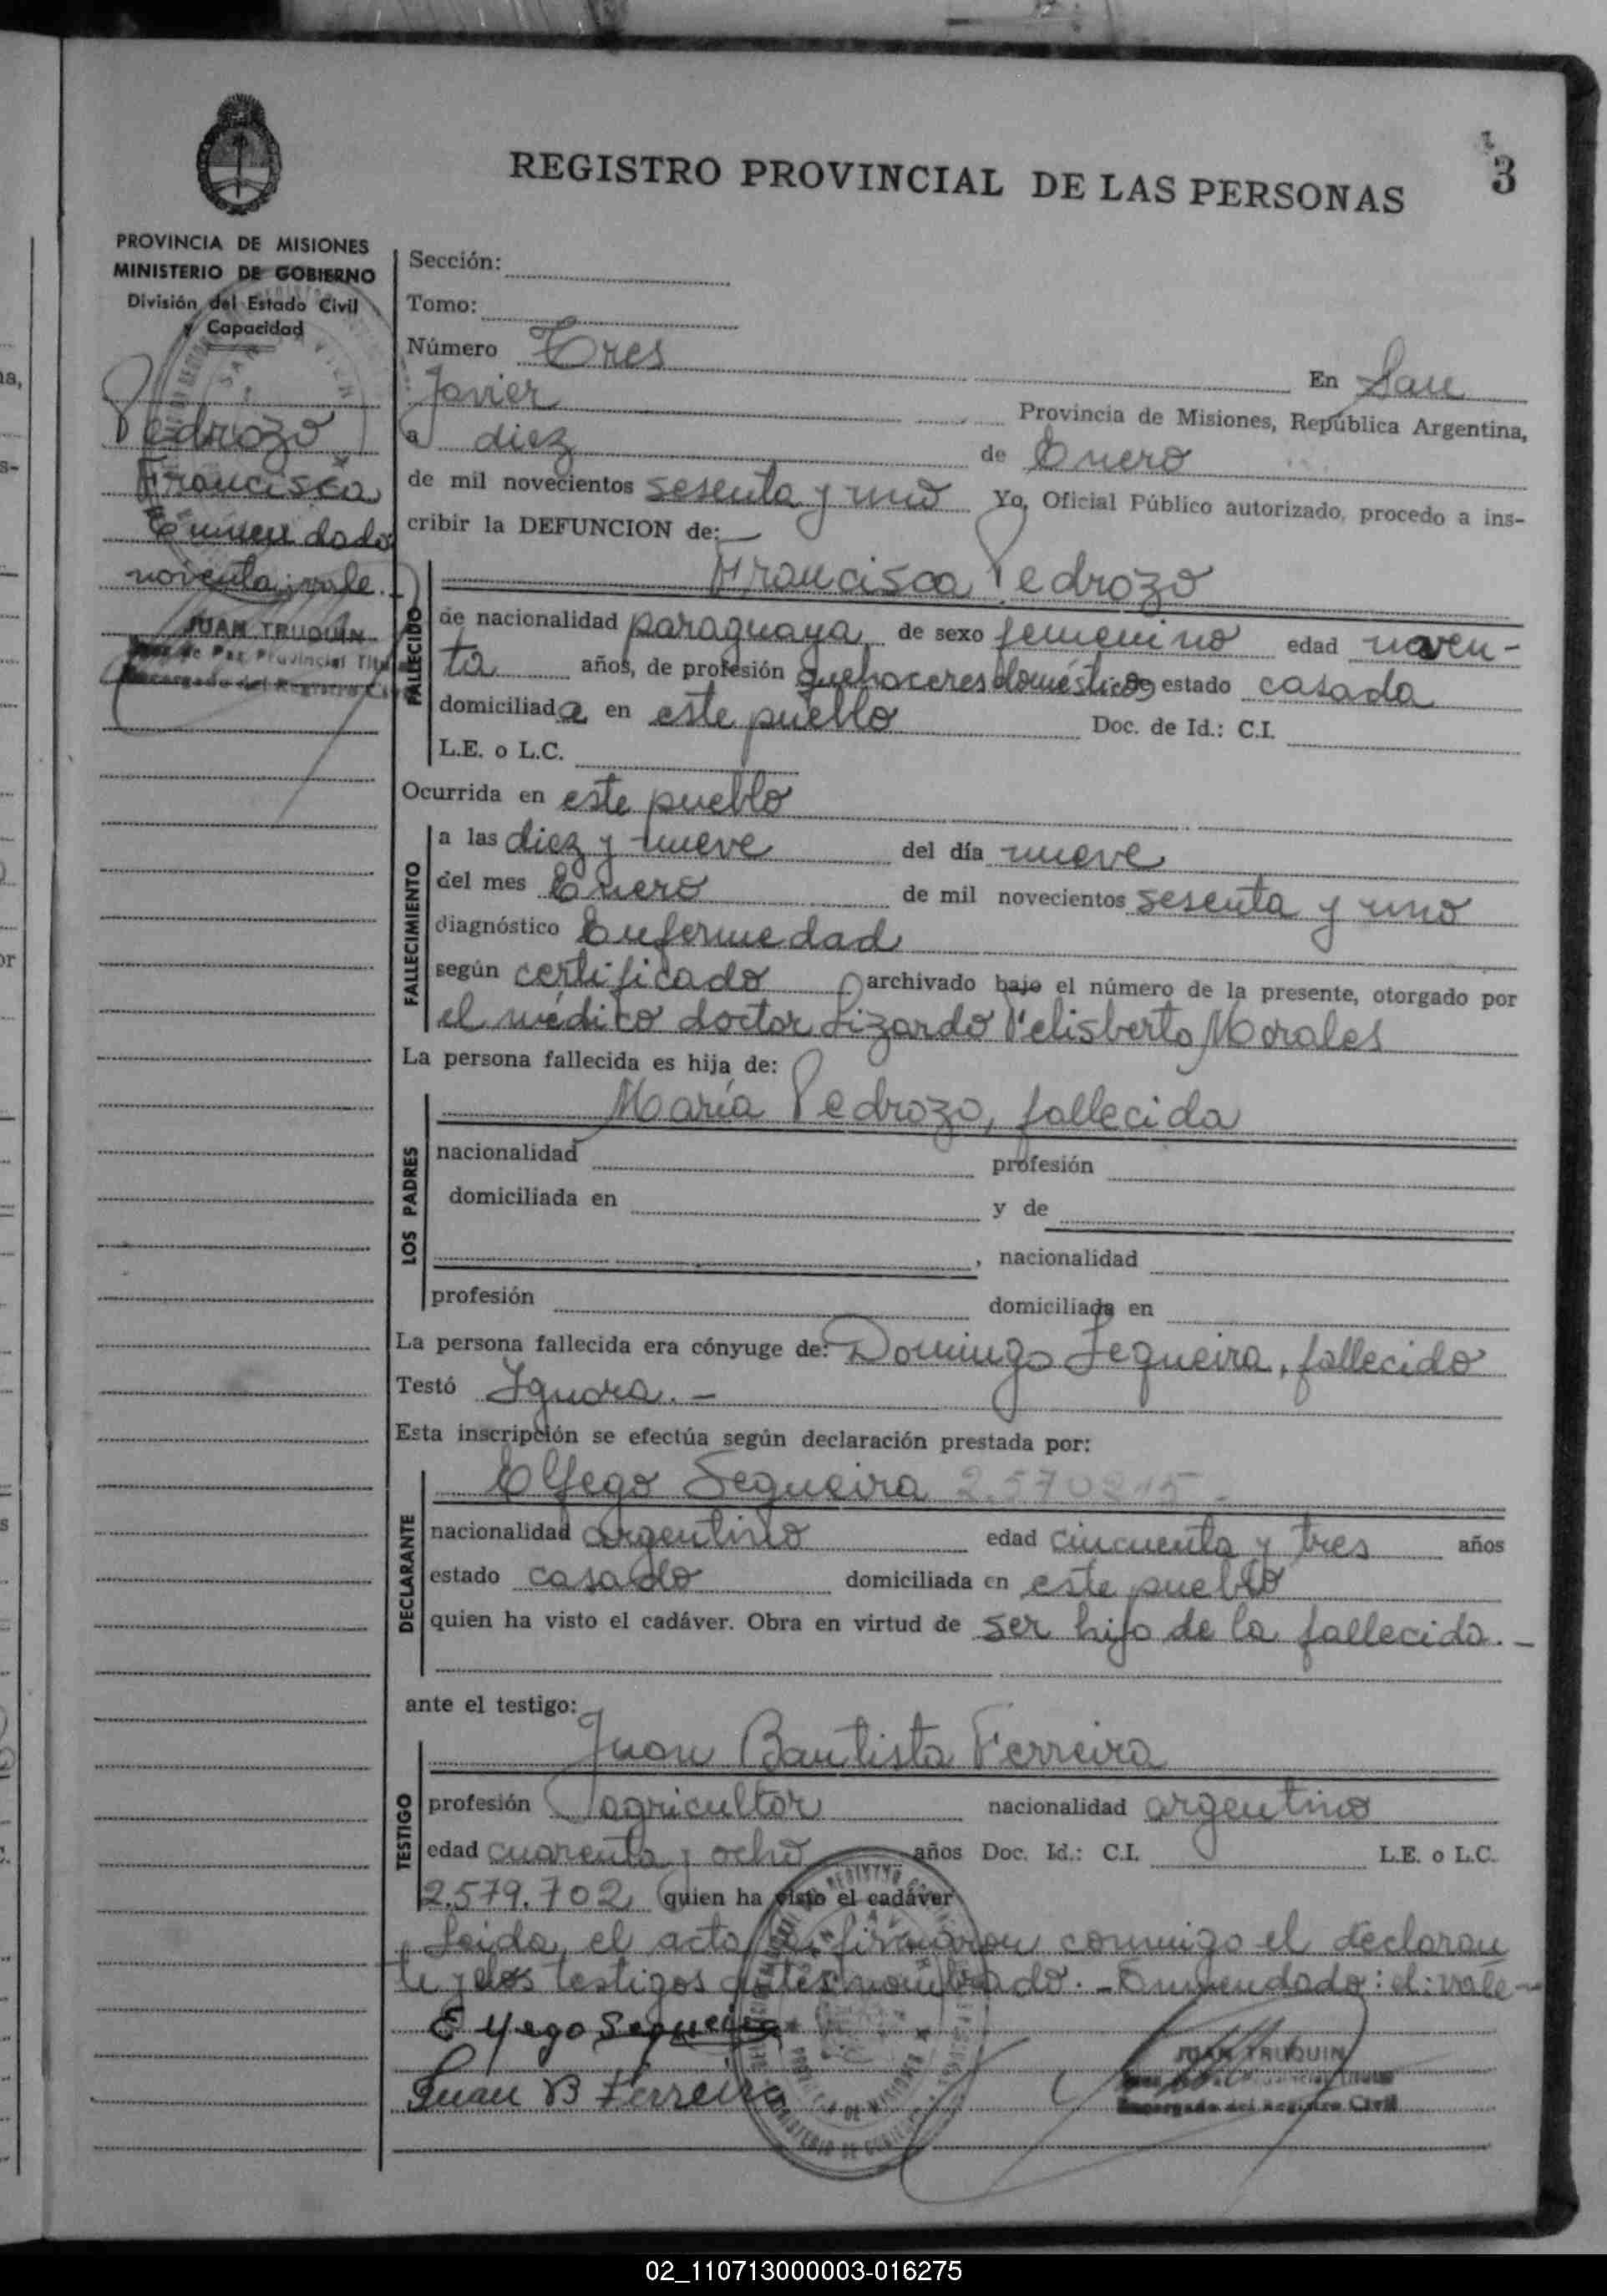 3
REGISTRO PROVINCIAL DE LAS PERSONAS
PROVINCIA DE MISIONES
MINISTERIO DE GOBIERNO
División del Estado Civil
y Capacidad
Pedrozo
Francisca
Enmendado
noventa; vale.
JUAN TRUQUIN
Juez de Paz Provincial Titular
Encargado del Registro Civil
Sección:
Tomo:
Número Tres En San
Javier Provincia de Misiones, República Argentina,
a diez de Enero
de mil novecientos sesenta y uno Yo, Oficial Público autorizado, procedo a ins-
cribir la DEFUNCION de:
FALLECIDO
Francisca Pedrozo
de nacionalidad paraguaya de sexo femenino edad noven-
ta años, de profesión quehaceres domésticos de estado casada
domiciliada en este pueblo Doc. de Id.: C.I.
L.E. o L.C.
Ocurrida en este pueblo
FALLECIMIENTO
a las diez y nueve del día nueve
del mes Enero de mil novecientos sesenta y uno
diagnóstico Enfermedad
según certificado archivado bajo el número de la presente, otorgado por
el médico doctor Lizardo Felisberto Morales
La persona fallecida es hija de:
LOS PADRES
María Pedrozo, fallecida
nacionalidad profesión
domiciliada en y de
, nacionalidad
profesión domiciliada en
La persona fallecida era cónyuge de: Domingo Sequeira, fallecido
Testó Ignora.-
Esta inscripción se efectúa según declaración prestada por:
DECLARANTE
Elfego Sequeira 2.570215 -
nacionalidad argentino edad cincuenta y tres años
estado casado domiciliada en este pueblo
quien ha visto el cadáver. Obra en virtud de ser hijo de la fallecida.-
ante el testigo:
TESTIGO
Juan Bautista Ferreira
profesión agricultor nacionalidad argentino
edad cuarenta y ocho años Doc. Id.: C.I. L.E. o L.C.
2.579.702 quien ha visto el cadáver
Leída el acta la firmaron conmigo el declaran
te y los testigos antes nombrado.- Enmendado: el: vale-
Elfego Sequeira
Juan B Ferreira
JUAN TRUQUIN
Encargado del Registro Civil
02_110713000003-016275